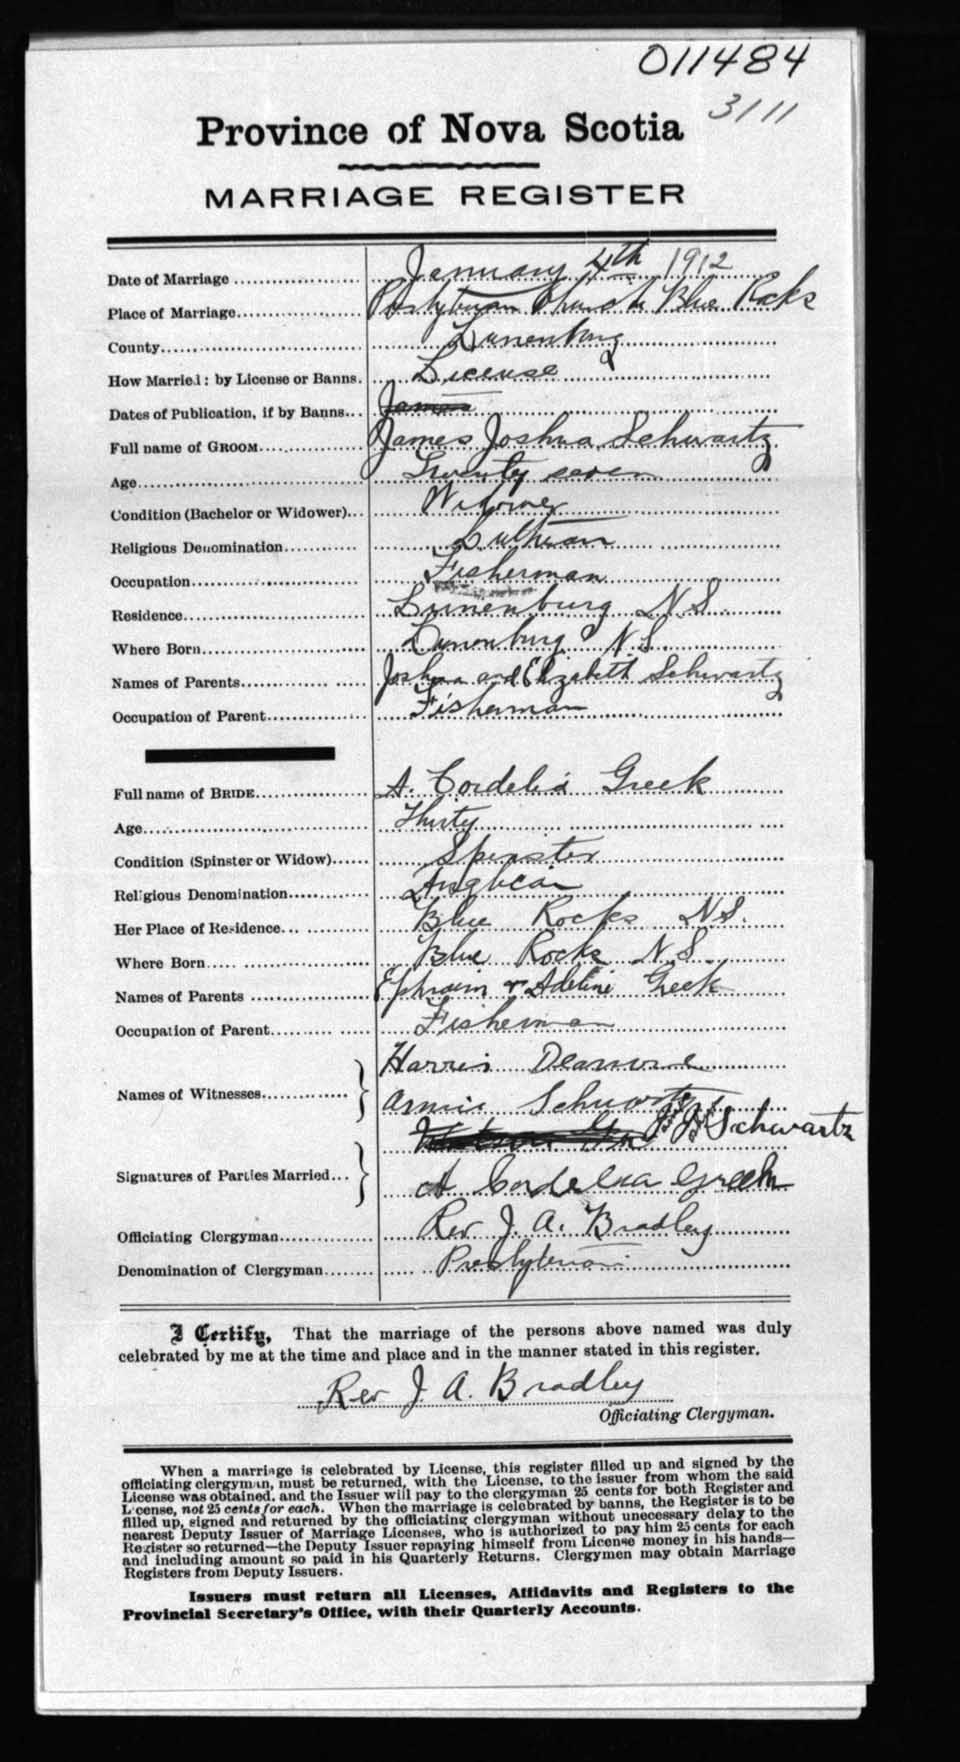 011484
3111
Province of Nova Scotia
MARRIAGE REGISTER
Date of Marriage January 4th 1912
Place of Marriage Presbyterian Church Blue Rocks
County Lunenburg
How Married: by License or Banns. License
Dates of Publication, if by Banns... James
Full name of GROOM James Joshua Schwartz
Age Twenty seven
Condition (Bachelor or Widower) Widower
Religious Denomination Lutheran
Occupation Fisherman
Residence Lunenburg N.S.
Where Born Lunenburg N.S.
Names of Parents Joshua and Elizabeth Schwartz
Occupation of Parent Fisherman
Full name of BRIDE A. Cordelia Greek
Age Thirty
Condition (Spinster or Widow) Spinster
Religious Denomination Anglican
Her Place of Residence Blue Rocks N.S.
Where Born Blue Rocks N.S.
Names of Parents Ephraim & Adeline Greek
Occupation of Parent Fisherman
Names of Witnesses Harris
Annie Schwartz
Signatures of Parties Married J. J. Schwartz
A Cordelia Greek
Officiating Clergyman Rev J. A. Bradley
Denomination of Clergyman Presbyterian
I Certify, That the marriage of the persons above named was duly
celebrated by me at the time and place and in the manner stated in this register.
Rev J. A. Bradley
Officiating Clergyman.
When a marriage is celebrated by License, this register filled up and signed by the
officiating clergyman, must be returned, with the License, to the issuer from whom the said
License was obtained, and the Issuer will pay to the clergyman 25 cents for both Register and
License, not 25 cents for each. When the marriage is celebrated by banns, the Register is to be
filled up, signed and returned by the officiating clergyman without unnecessary delay to the
nearest Deputy Issuer of Marriage Licenses, who is authorized to pay him 25 cents for each
Register so returned—the Deputy Issuer repaying himself from License money in his hands—
and including amount so paid in his Quarterly Returns. Clergymen may obtain Marriage
Registers from Deputy Issuers.
Issuers must return all Licenses, Affidavits and Registers to the
Provincial Secretary's Office, with their Quarterly Accounts.